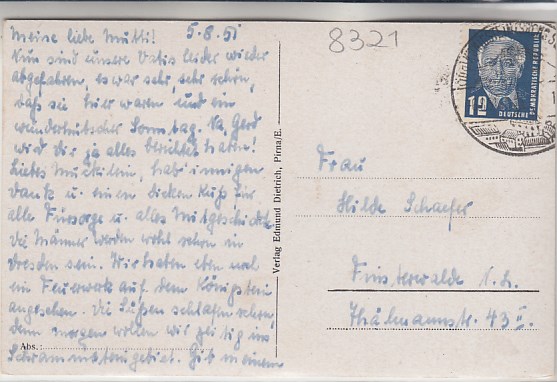 Meine liebe Mutti! 5.8.51
Nun sind unsere Vatis leider wieder
abgefahren, es war sehr, sehr schön,
daß sie hier waren und ein
wunderhübscher Sonntag. Na, Gerd
wird Dir ja alles berichtet haben!
Liebes Muckilein, hab' innigen
Dank u. einen dicken Kuß für
alle Fürsorge u. alles Mitgeschickte.
Die Männer werden wohl schon in
Dresden sein. Wir haben eben noch
ein Feuerwerk auf dem Königstein
angesehen. Die Süßen schlafen schon,
denn morgen wollen wir zeitig ins
Abs.:
Schrammsteingebiet. Gib m einem
Verlag Edmund Dietrich, Pirna/E.
8321
12
DEUTSCHE
DEMOKRATISCHE REPUBLIK
Frau
Hilde Schaefer
Finsterwalde N.L.
Thälmannstr. 43 II.